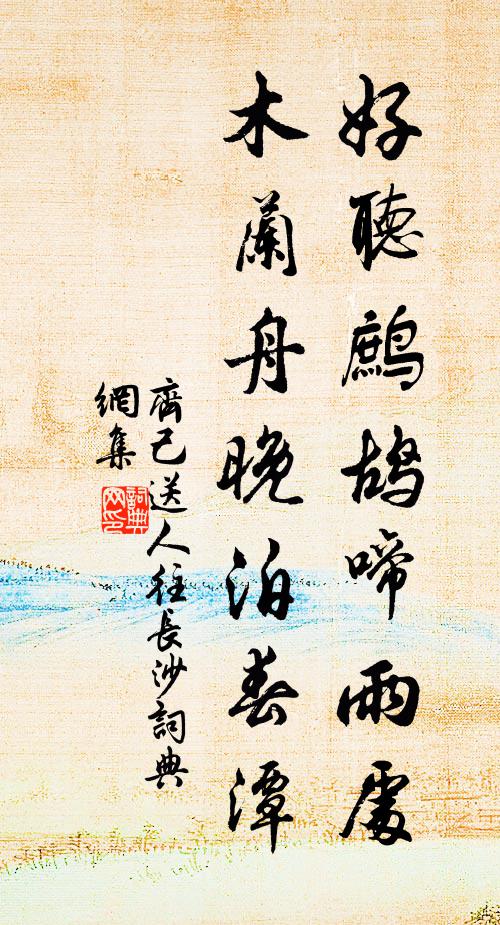 好聽鷓鴣啼雨處
木蘭舟晚泊春潭
齊己送人往長沙詞典
網集
詞典
网印